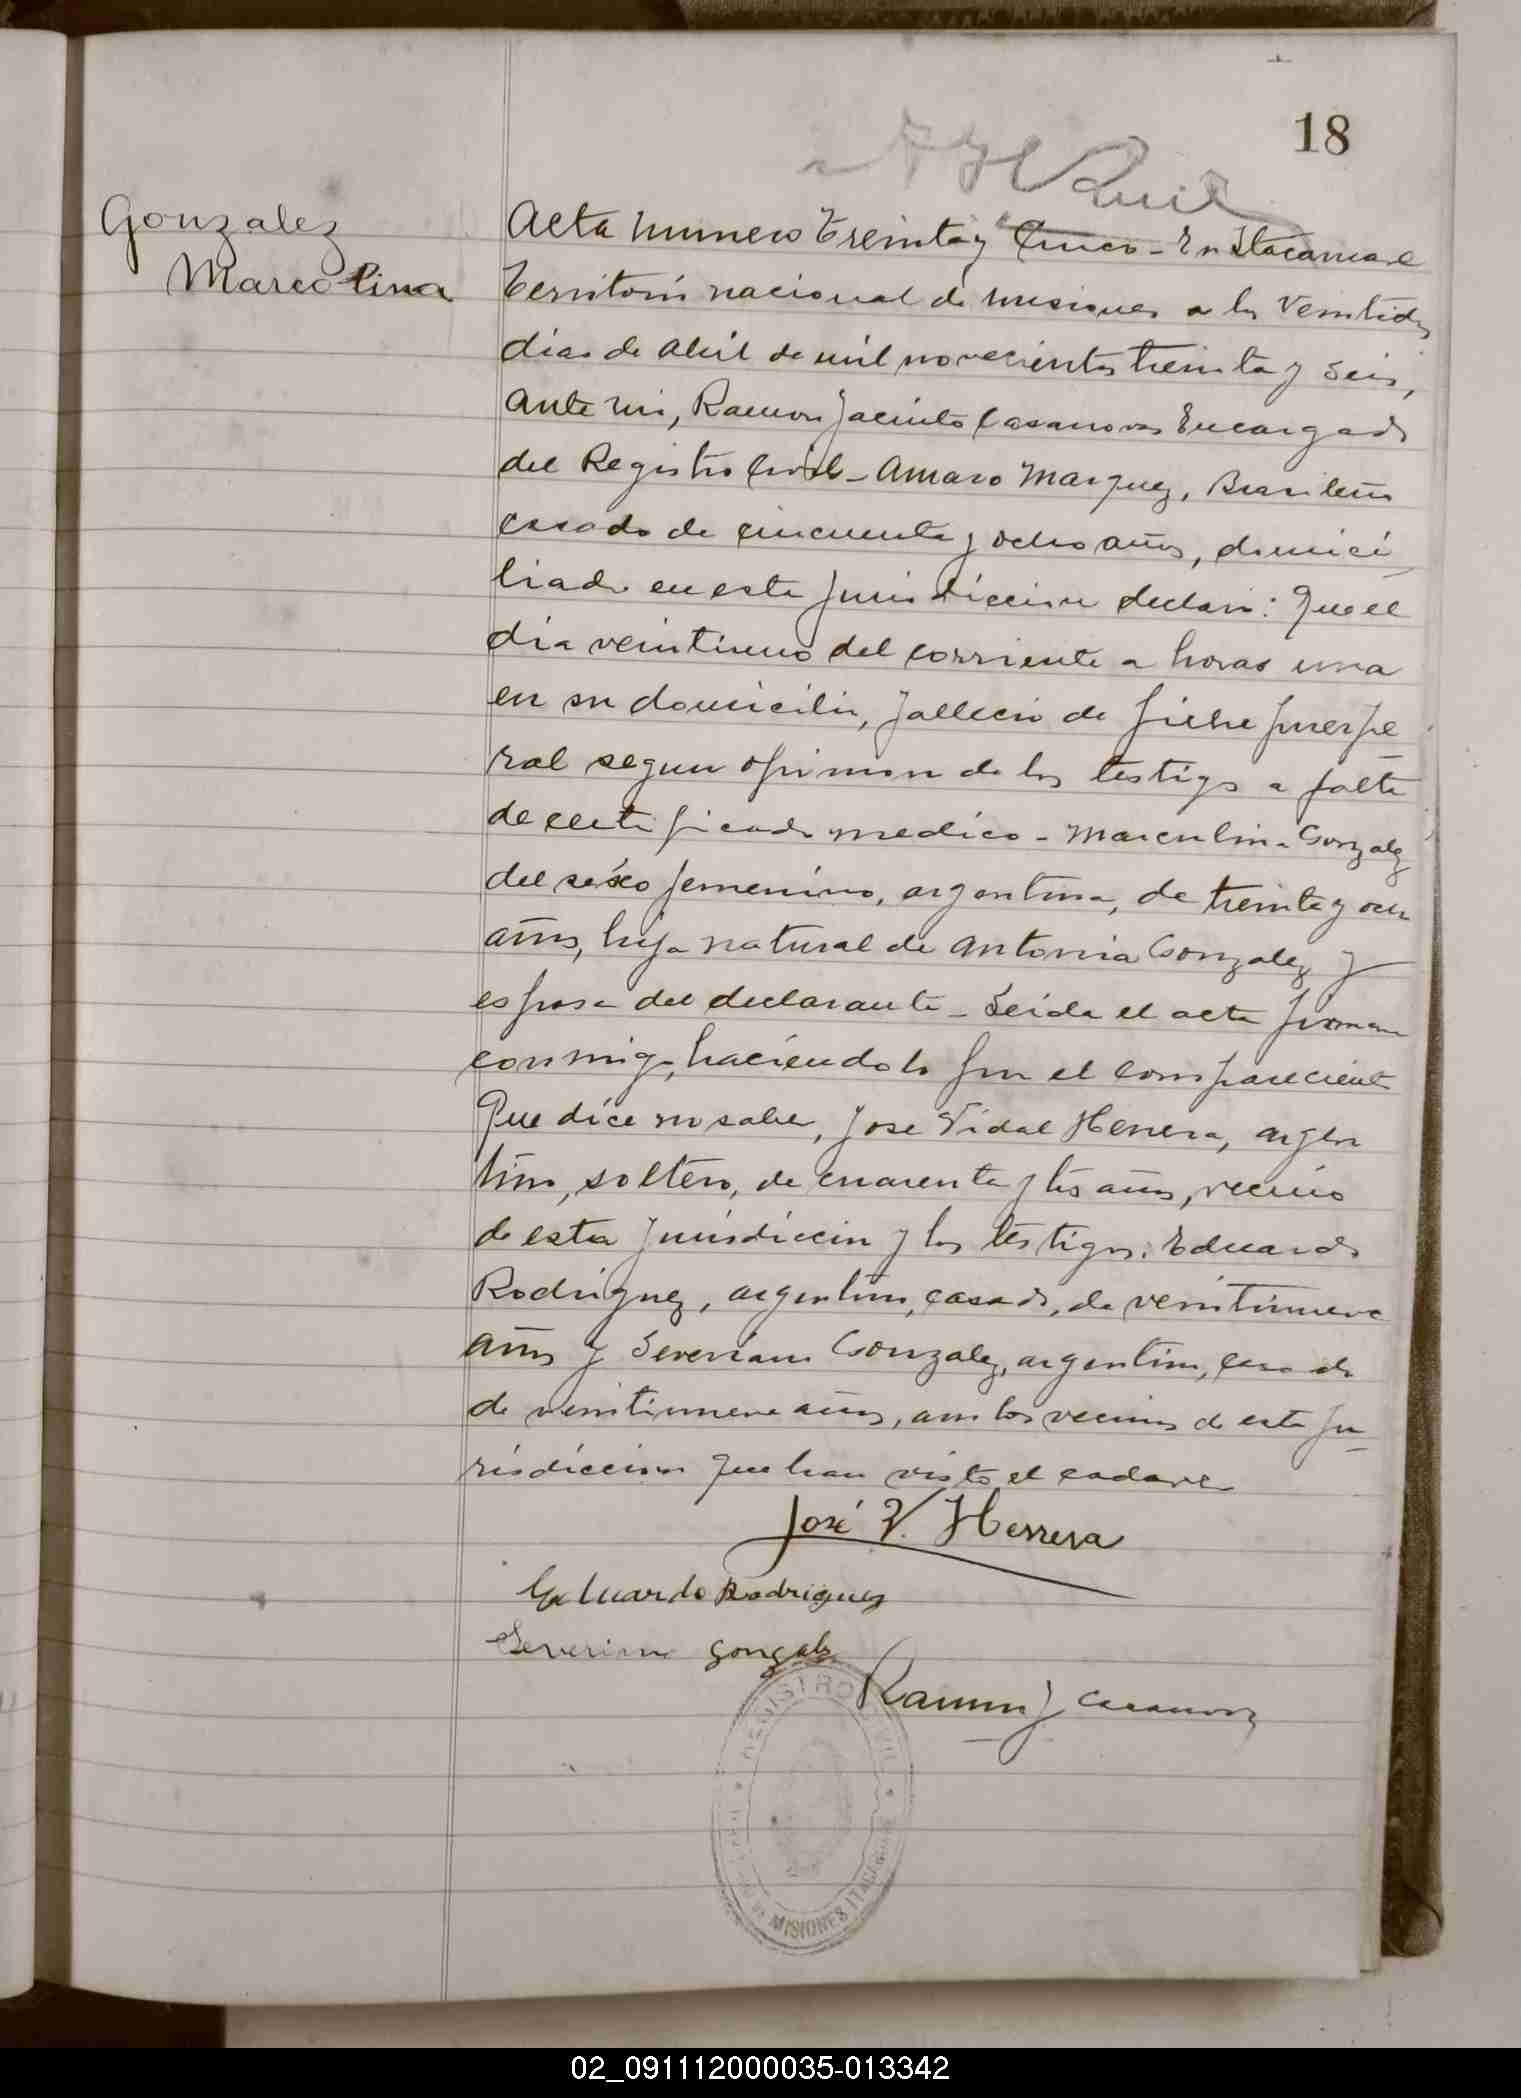 18
Gonzalez
Marcolina
Acta numero treinta y Cinco - En Itacaruaré
Territorio nacional de misiones a los Veintidos
dias de abril de mil novecientos treinta y seis,
ante mi, Ramon Jacinto Casanova Encargado
del Registro Civil - Amaro Marquez, Brasileño
casado de cincuenta y ocho años, domici
liado en esta jurisdiccion declaro: Que el
dia veintiuno del corriente a horas una
en su domicilio, fallecio de fiebre puerpe
ral segun opinion de los testigos a falta
de certificado medico - Marculina Gonzalez
del sexo femenino, argentina, de treinta y ocho
años, hija natural de Antonia Gonzalez y
esposa del declarante - Leida el acta firman
conmigo, haciendolo por el compareciente
Que dice no saber, Jose Vidal Herrera, argen
tino, soltero, de cuarenta y tres años, vecino
de esta jurisdiccion y los testigos: Eduardo
Rodriguez, argentino, casado, de veintinueve
años y Severiano Gonzalez, argentino, casado
de veintinueve años, ambos vecinos de esta ju
risdiccion que han visto el cadaver
José V. Herrera
Eduardo Rodrigues
Severino gonzalez
Ramon J Casanova
REGISTRO CIVIL
MISIONES ITACARUARE
02_091112000035-013342